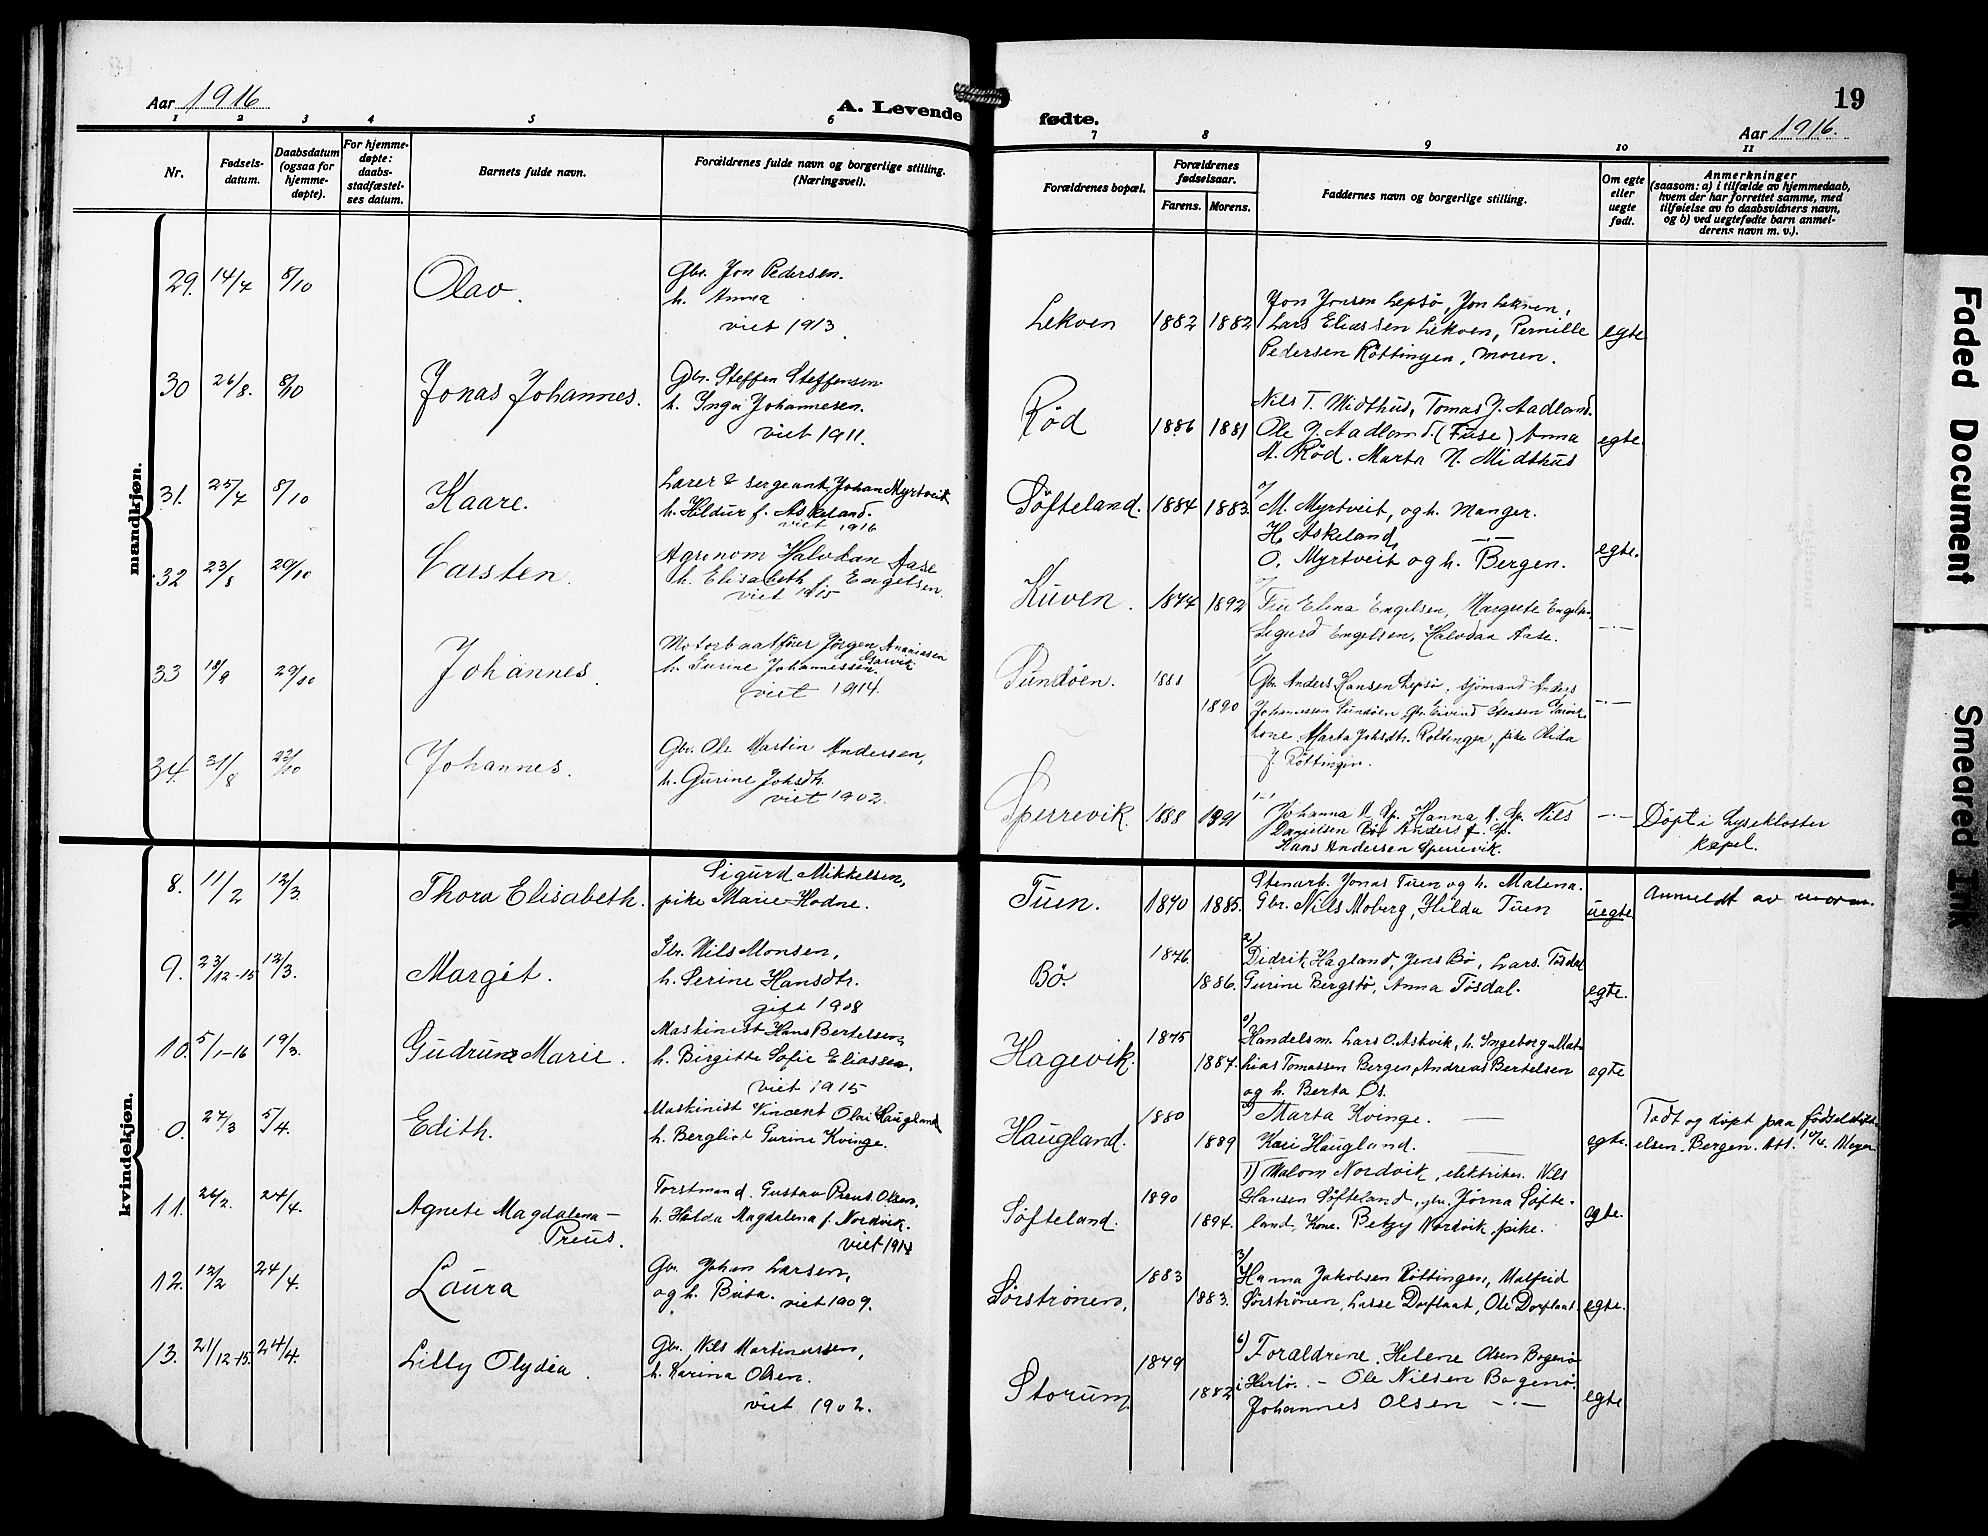 Aar 1916
A. Levende
fødte.
19
Aar 1916.
1 2 3 4 5 6 7 8 9 10 11
Nr.
Fødsels-
datum.
Daabsdatum
(ogsaa for
hjemme-
døpte).
For hjemme-
døpte:
daabs-
stadfæstel-
ses datum.
Barnets fulde navn.
Forældrenes fulde navn og borgerlige stilling.
(Næringsvei).
Forældrenes bopæl.
Forældrenes
fødselsaar.
Farens. Morens.
Faddernes navn og borgerlige stilling.
Om egte
eller
uegte
født.
Anmerkninger
(saasom: a) i tilfælde av hjemmedaab,
hvem der har forrettet samme, med
tilføielse av to daabsvidners navn,
og b) ved uegtefødte barn anmel-
derens navn m. v.).
mandkjøn.
29. 14/7 8/10 Olav.
Gbr. Jon Pedersen.
h. Anna
viet 1913.
Lekven 1882 1882
Jon Jonsen Lepsö, Jon Lekven,
Lars Eliassen Lekven, Pernille
Pedersen Röttingen, moren.
egte
30 26/8. 8/10 Jonas Johannes.
Gbr. Steffen Steffensen
h. Inga Johannesen.
viet 1911.
Rød 1886 1881
Nils T. Midthus, Tomas J. Aadland.
Ole J. Aadland. (Fuse) Anna
A. Rød. Marta N. Midthus
egte.
31. 25/7 8/10 Kaare.
Lærer & sergeant Johan Myrtveit
h. Hildur f. Askeland.
viet 1916
Søfteland. 1884 1883.
M. Myrtveit, og h. Manger.
H. Askeland,
O. Myrtveit og h. Bergen.
egte.
32 23/8 29/10 Carsten.
Agronom Halvdan Aase
h. Elisabeth f. Engelsen.
viet 1915
Kuven. 1892
Fru Elina Engelsen, Margrete Engelsen,
Sigurd Engelsen, Halvdan Aase.
33 18/9 29/10 Johannes.
Motorbaatfører Jørgen Ananiasen
h. Gurine Johannessen
viet 1914.
Sundöen. 1888 1890
Gbr. Anders Hansen Lepsö, sjömand Anders
Johannessen Sundöen, Gbr. Eivind
kone Marta Johsdtr. Röttingen, pike
J. Röttingen.
34. 31/8 Johannes.
Gbr. Ole Martin Andersen,
h. Gurine Johsdtr.
viet 1902.
Sperrevik. 1888 1891
Johanna A. Sp. Hanna A. Sp. Nils
Danielsen Anders Sp.
Hans Andersen Sperrevik.
Döpt i Lysekloster
kapel.
kvindekjøn.
8. 11/2 12/3. Thora Elisabeth.
Sigurd Mikkelsen,
pike Marie Hodne.
Tuen. 1885.
Stenarb. Jonas Tuen og h. Malena.
Gbr. Nils Moberg, Hilda Tuen
uegte
Anmeldt av moren.
9. 23/12-15 12/3. Margit.
Gbr. Nils Monsen,
h. Serine Hansdtr.
gift 1908
Bö. 1876 1886.
Didrik Hagland, Jens Bø, Lars Tösdal
Gurine Bergstö, Anna Tösdal.
egte.
10. 5/1-16 19/3. Gudrun Marie.
Maskinist Hans Bertelsen,
h. Birgitte Sofie Eliassen,
viet 1915
Hagevik. 1875 1887.
Handelsm. Lars O. Askvik, h. Ingeborg Mat-
hias Tomassen Bergen, Andreas Bertelsen
og h. Berta Os.
egte
0. 27/3 5/4. Edith.
Maskinist Vincent Olai Haugland
h. Bergliot Gurine Kvinge.
Haugland. 1880 1889
Marta Kvinge.
Kari Haugland.
egte.
Födt og döpt paa födselsstift-
elsen. Bergen. Att. 10/4. Meyer
11. 26/2. 24/4. Agnete Magdalena-
Preus.
Forstmand. Gustav Preus Olsen,
h. Hilda Magdalena f. Nordvik.
viet 1914
Søfteland. 1890 1894.
1) Malom Nordvik, elektriker. Nils
Hansen Söfteland, gbr. Jörna Söfte-
land. Kone. Betzy Nordvik, pike.
egte.
12. 12/2 24/4. Laura
Gbr. Johan Larsen,
og h. Brita. viet 1909.
Sørstrønen, 1883 1883.
3/
Hanna Jakobsen Röttingen, Malfrid
Sørstrønen, Lasse Drøflaat, Ole Drøflaat
egte.
13. 21/12-15. 24/4. Lilly Olydia.
Gbr. Nils Martinussen,
h. Karina Olsen.
viet 1902.
Storum, 1879 1882
6) Foraldrene, Helene Olsen Bogenö
i Herlö. - Ole Nilsen Bogenö.
Johannes Olsen -.-
egte
Faded Document
Smeared Ink